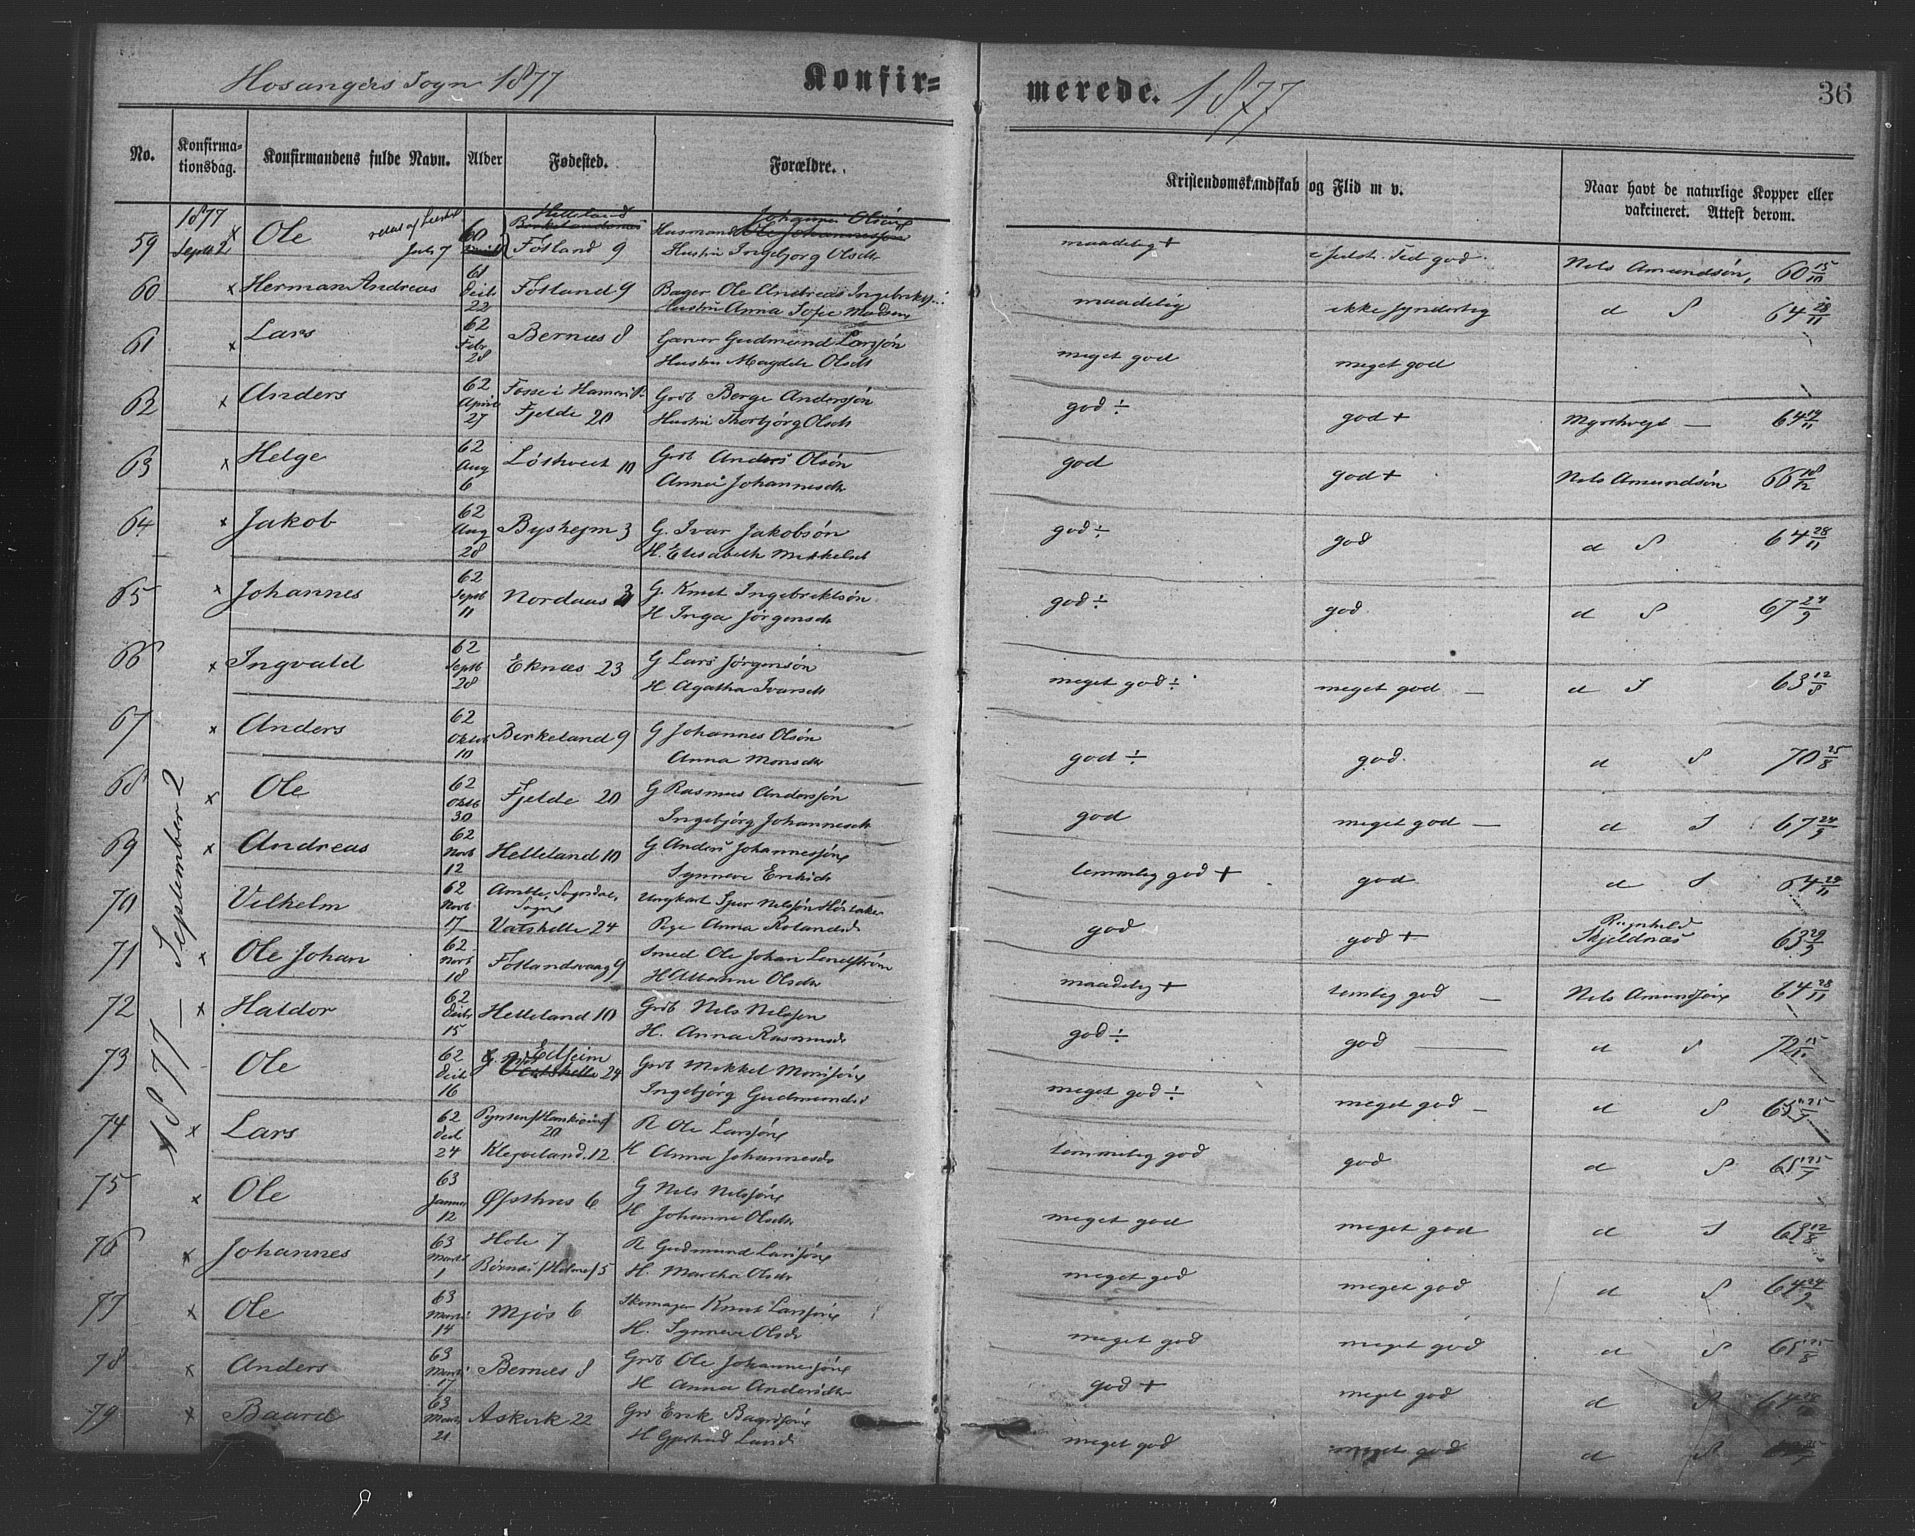 Hosangers Sogn 1877
Konfir=
merede. 1877
36
No.
Konfirma-
tionsdag.
Konfirmandens fulde Navn.
Alder
Fødested.
Forældre.
Kristendomskundskab og Flid m v.
Naar havt de naturlige Kopper eller
vakcineret. Attest derom.
1877
59 Septb 2 x Ole Juli 7 60 Helleland Føtland 9 Husmand Johannes Olsen
Hustru Ingebjorg Olsdtr maadelig + Nels Amundsøn, 60 15/10
60 x Herman Andreas 61 Decb 22 Føtland 9 Bager Ole Andreas Ingebrikts
Hustru Anna Sofie Madsen maadelig ikke synderlig d S 64 28/11
61 x Lars 62 Febr 28 Bernæs 8 Garver Gudmund Larsøn
Hustru Magdele Olsdt meget god meget god
62 x Anders 62 April 27 Fosse i Hamer
Fjelde 20 Grdb Berge Andersøn
Hustru Thorbjørg Olsdt god ÷ god + Myrthvegt — 64 14/11
63 x Helge 62 Aug 6 Løtkveit 10 Grdb Anders Olsøn
Anna Johannesdtr god god + Nels Amundsøn 66 18/12
64 x Jakob 62 Aug 28 Byshejm 3 G. Ivar Jakobsøn
H Elisabeth Mikkelsdt god ÷ god d S 64 28/11
65 x Johannes 62 Septb 11 Nordaas 3 G. Knut Ingebriktsøn
H Inga Jørgensdtr god ÷ god d S 67 24/9
66 x Ingvald 62 Septb 28 Eknæs 23 G Lars Jørgensøn
H Agatha Ivarsdt meget god ÷ meget god — d S 63 12/8
67 x Anders 62 Oktob 10 Birkeland 9 G Johannes Olsøn
Anna Monsdtr god ÷ god d S 70 25/8
68 x Ole 62 Oktb 30 Fjelde 20 G Rasmus Andersøn
Ingebjörg Johannesdt god meget god — d S 67 24/9
1877 — September 2
69 x Andreas 62 Novb 12 Helleland 10 G. Anders Johannesøn
Synneve Eriksdt temmelig god + god d S 64 28/11
70 Vilhelm 62 Novb 17 Amble, Sogndals
Sogn
Vatshelle 24 Ungkarl Sjur Nilsøn
Pige Anna Rolandsd god god + Ragnhild
Skjeldnæs 63 29/9
71 x Ole Johan 62 Novb 18 Føtlandsvaag 9 Smed Ole Johan Lendstrøm
H Alsanne Olsdtr maadelig + temlig god — Nels Amundsøn 64 28/11
72 x Haldor 62 Decb 15 Helleland 10 Grdb Nels Nelsøn
H. Anna Rasmusd god ÷ god — d S 72 15/11
73 Ole 62 Decb 16 Eitheim
24 Grdb Mikkel Monsøn
Ingebjørg Gudmundsd meget god ÷ meget god — d S
74 x Lars 62 Decb 24
Klejveland 12 R Ole Larsøn
H Anna Johannesd temmelig god god d S 65 25/7
75 x Ole 63 Januar 12 Øfsthus 6 G Nels Nelsøn
H. Johanne Olsdtr meget god meget god d S 63 12/8
76 x Johannes 63 Marts 1 Hole 7
R Gudmund Larsøn
H. Martha Olsdtr meget god meget god d S 64 24/9
77 x Ole 63 Marts 14 Mjøs 6 Skomager Knut Larsøn
H. Synneve Olsdt meget god meget god d S 65 25/8
78 x Anders 63 Marts 17 Bernæs 8 Grdb Ole Johannesøn
H Anna Andersdtr god + meget god d S 64
79 x Baard 63 Marts 21 Askvik 22 Grd Erik Bagrdsøn
H Gjertrud Larsd meget god meget god d S